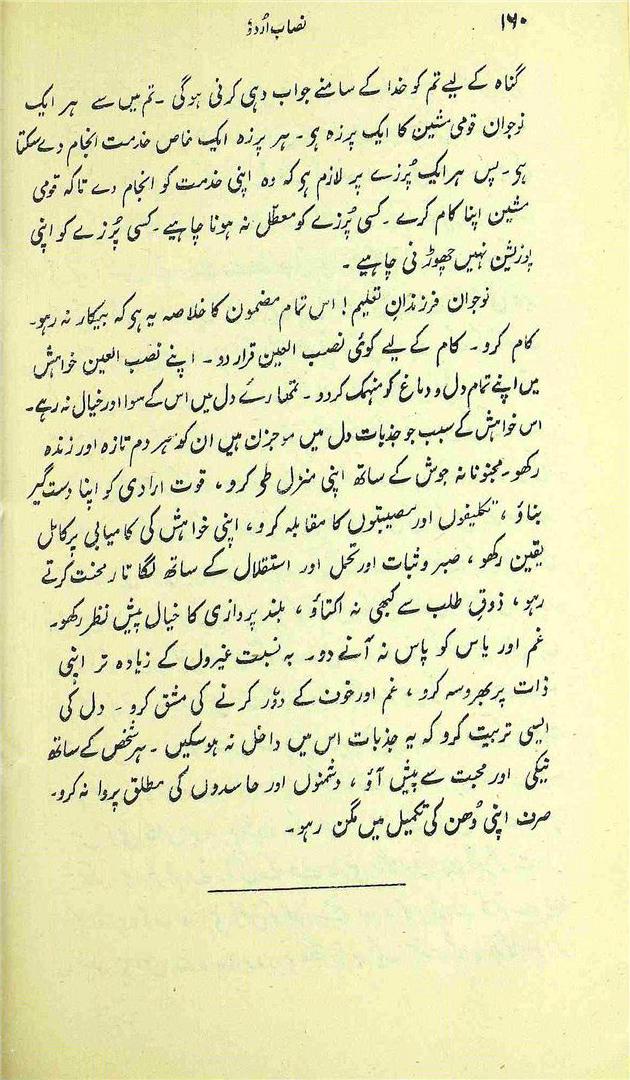 ۱۶۰
نصاب اُردؤ
گناہ کے لیے تم کو خدا کے سامنے جواب دہی کرنی ہوگی ۔ تم میں سے ہر ایک
نوجوان قومی مشین کا ایک پرزہ ہو ۔ ہر پرزہ ایک خاص خدمت انجام دے سکتا
ہی ۔ پس ہر ایک پُرزے پر لازم ہو کہ وہ اپنی خدمت کو انجام دے تاکہ قومی
مشین اپنا کام کرے ۔ کسی پُرزے کو معطّل نہ ہونا چاہیے ۔ کسی پُرزے کو اپنی
پوزیشن نہیں چھوڑنی چاہیے ۔
نوجوان فرزندانِ تعلیم ! اس تمام مضمون کا خلاصہ یہ ہو کہ بیکار نہ رہو ۔
کام کرو ۔ کام کے لیے کوئی نصب العین قرار دو ۔ اپنے نصب العین خواہش
میں اپنے تمام دل و دماغ کو منہمک کردو ۔ تمھارے دل میں اس کے سوا اور خیال نہ رہے ۔
اس خواہش کے سبب جو جذبات دل میں موجزن ہیں ان کو ہر دم تازہ اور زندہ
رکھو ۔ مجنونانہ جوش کے ساتھ اپنی منزل طی کرو ، قوت ارادی کو اپنا دست گیر
بناؤ ، تکلیفوں اور مصیبتوں کا مقابلہ کرو ، اپنی خواہش کی کامیابی پر کامل
یقین رکھو ، صبر و ثبات اور تحمل اور استقلال کے ساتھ لگا تار محنت کرتے
رہو ، ذوقِ طلب سے کبھی نہ اکتاؤ ، بلند پروازی کا خیال پیش نظر رکھو ۔
غم اور یاس کو پاس نہ آنے دو ۔ بہ نسبت غیروں کے زیادہ تر اپنی
ذات پر بھروسہ کرو ، غم اور خون کے دوٗر کرنے کی مشق کرو ۔ دل کی
ایسی تربیت کرو کہ یہ جذبات اس میں داخل نہ ہوسکیں ۔ ہر شخص کے ساتھ
نیکی اور محبت سے پیش آؤ ، دشمنوں اور حاسدوں کی مطلق پروا نہ کرو ۔
صرف اپنی دُھن کی تکمیل میں مگن رہو ۔